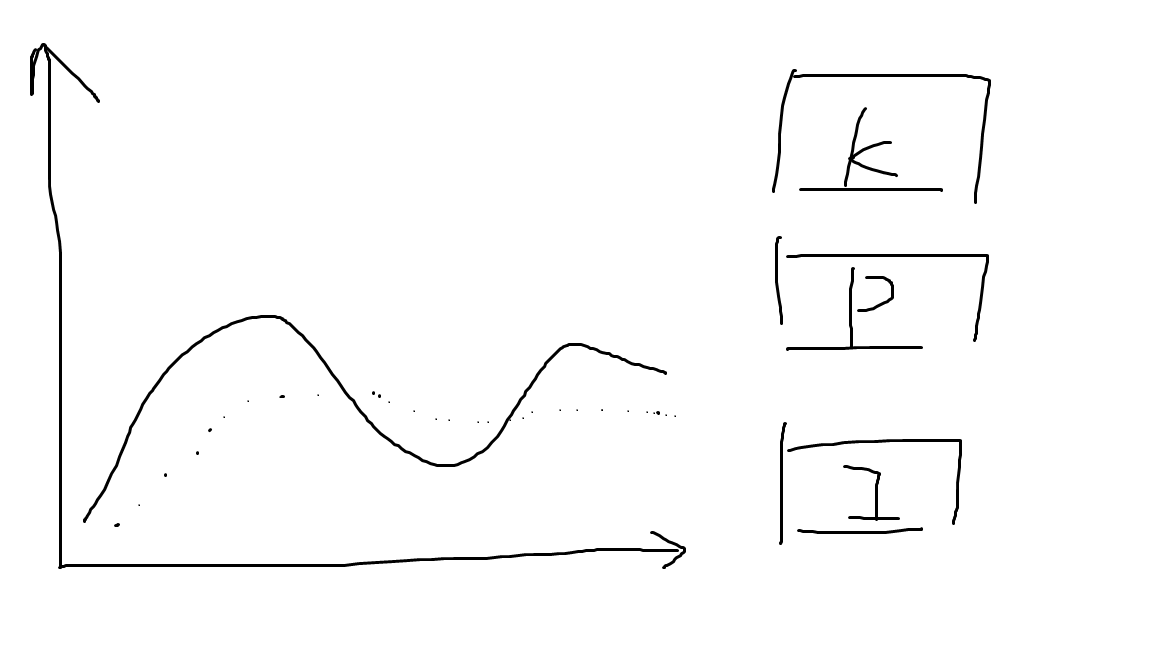 K
P
I